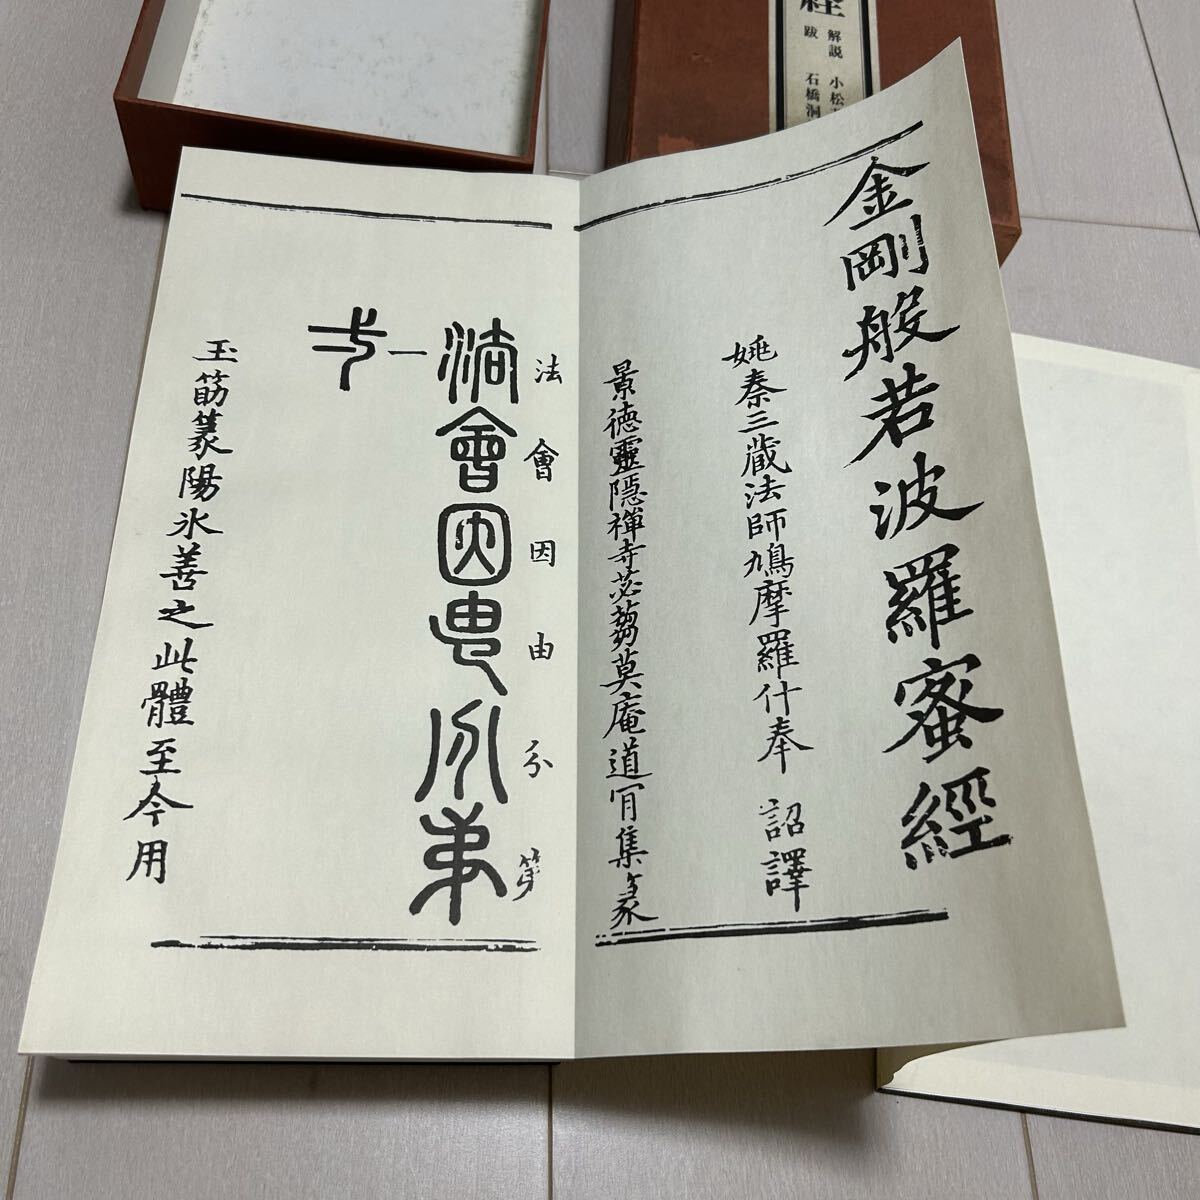 金剛般若波羅蜜經
姚秦三藏法師鳩摩羅什奉 詔譯
景德靈隱禪寺苾蒭莫庵道肯集篆
法會因由分第
法會因由分弟
一
玉筯篆陽氷善之此體至今用
経
解説 小松
跋 石橋